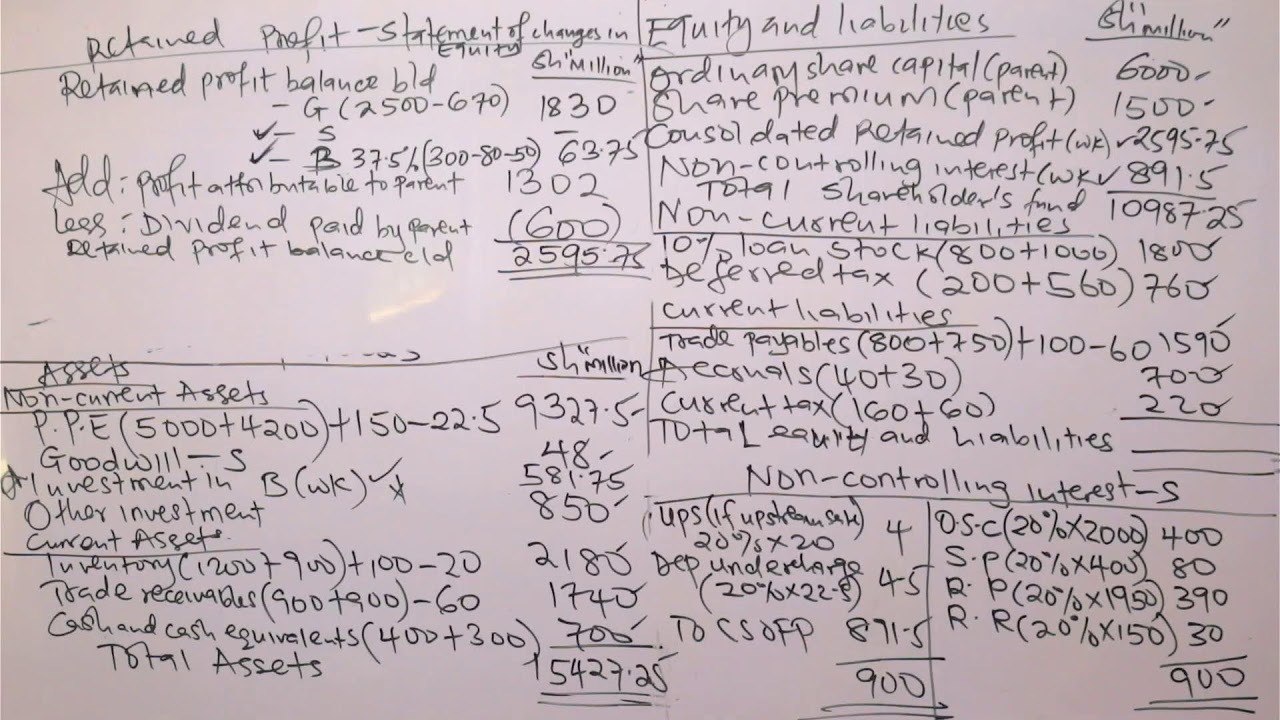 Retained Profit - Statement of changes in Equity
Sh"Million"
Retained profit balance b/d
- G (2500-670) 1830
✓- S -
✓- B 37.5%(300-80-50) 63.75
Add: Profit attributable to parent 1302
Less: Dividend paid by parent (600)
Retained Profit balance c/d 2595.75
Assets Sh"million
Non-current Assets
P.P.E (5000+4200)+150-22.5 9327.5-
Goodwill - S 48-
Investment in B (wk) ✓ 581.75
Other investment 850-
Current Assets
Inventory (1200+900)+100-20 2180
Trade receivables (900+900)-60 1740
Cash and cash equivalents (400+300) 700
Total Assets 15427.25
Equity and liabilities Sh"million"
Ordinary share capital (parent) 6000-
Share premium (parent) 1500-
Consolidated Retained Profit (wk) ✓ 2595.75
Non-controlling interest (wk ✓ 891.5
Total shareholder's fund 10987.25
Non-current liabilities
10% loan stock (800+1000) 1800
Deferred tax (200+560) 760
Current liabilities
Trade payables (800+750)+100-60 1590
Accruals (40+30) 700
Current tax (160+60) 220
Total equity and Liabilities
Non-controlling interest - S
UPS (if upstream sale) 20% x 20 4
Dep undercharge (20% x 22.5) 4.5
To CSOFP 891.5
900
O.S.C (20% x 2000) 400
S.P (20% x 400) 80
R.P (20% x 1950) 390
R.R (20% x 150) 30
900